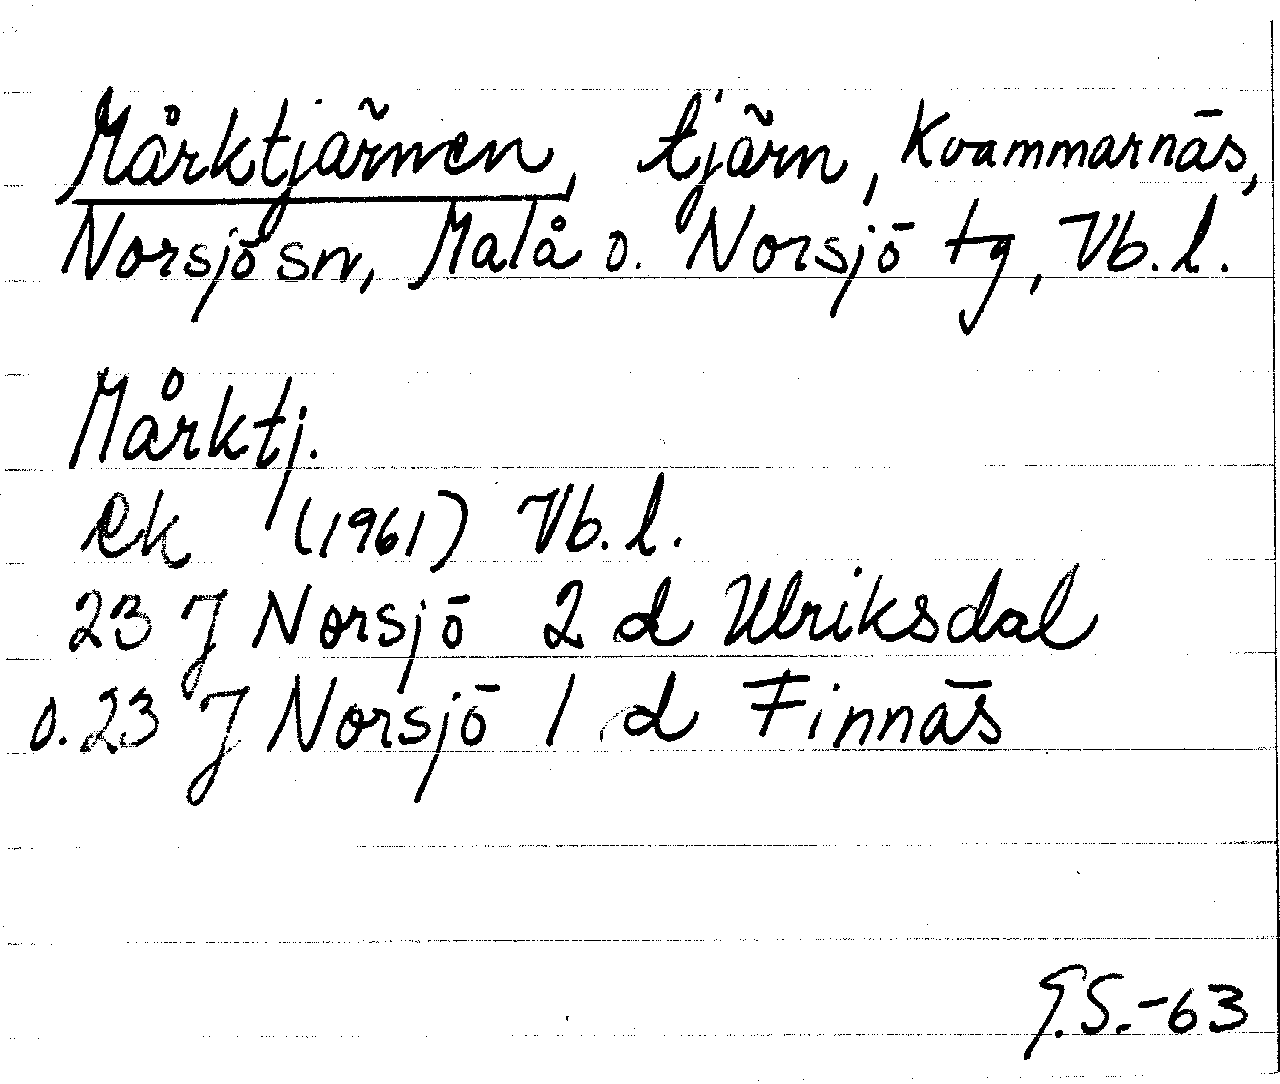 Mårktjärnen, tjärn, Kvammarnäs,
Norsjö sn, Malå o. Norsjö tg, Vb. l.
Mårktj.
ek (1961) Vb. l.
23 J Norsjö 2 d Ulriksdal
o. 23 J Norsjö 1 d Finnäs
G.S.-63